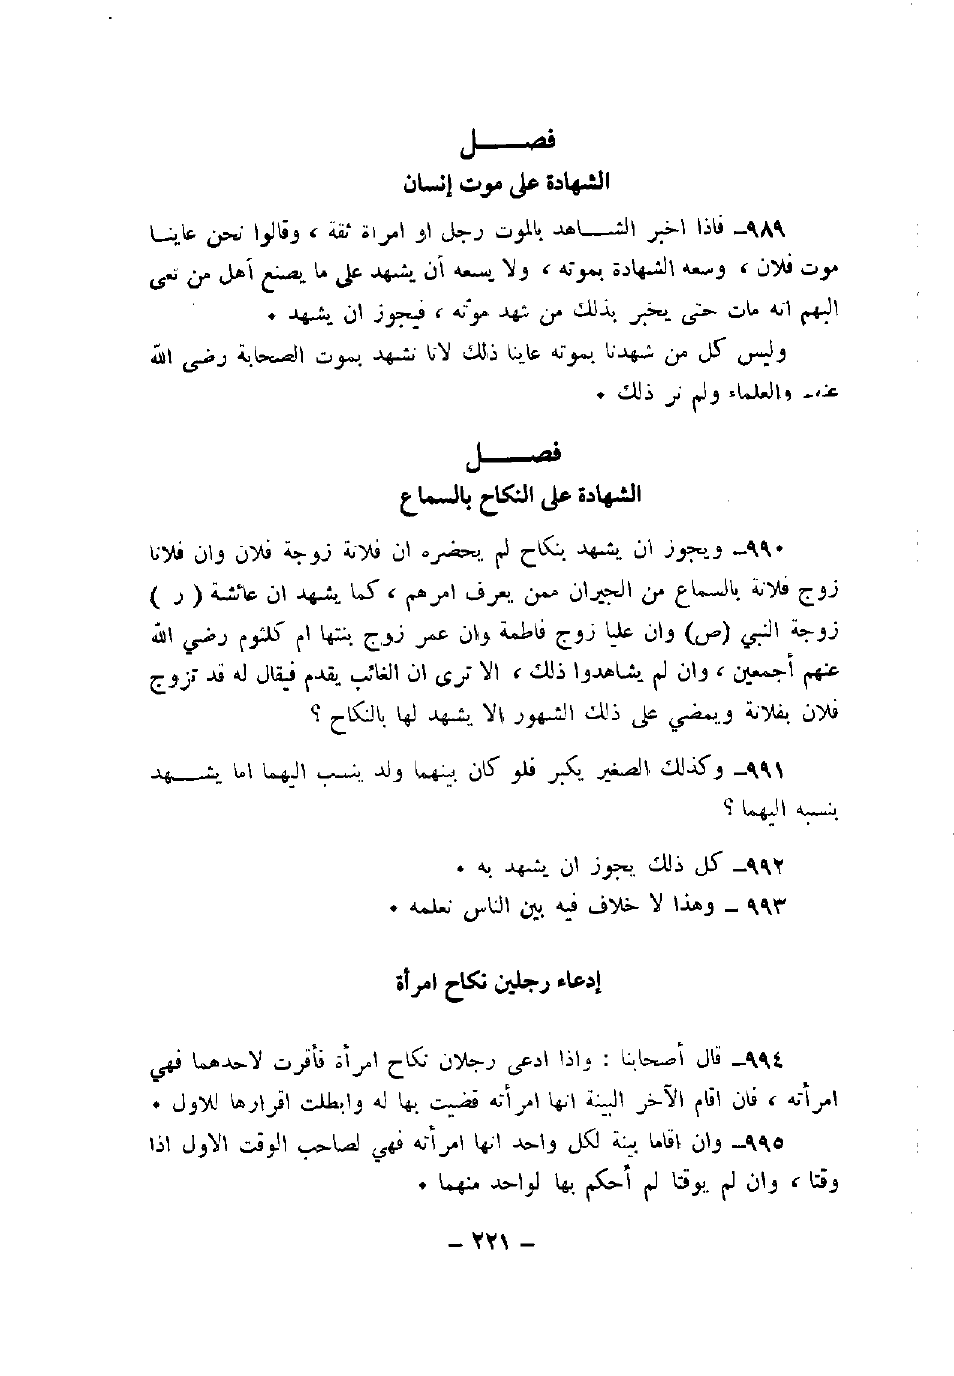 فصـــــل
الشهادة على موت إنسان
٩٨٩ـ فاذا اخبر الشـــاهد بالموت رجل او امراة ثقة ، وقالوا نحن عاينـا
موت فلان ، وسعه الشهادة بموته ، ولا يسعه أن يشهد على ما يصنع أهل من نعى
اليهم انه مات حتى يخبر بذلك من شهد موته ، فيجوز ان يشهد .
وليس كل من شهدنا بموته عاينا ذلك لانا نشهد بموت الصحابة رضى الله
والعلماء ولم نر ذلك .
فصـــــل
الشهادة على النكاح بالسماع
٩٩٠ـ ويجوز ان يشهد بنكاح لم يحضره ان فلانة زوجة فلان وان فلانا
زوج فلانة بالسماع من الجيران ممن يعرف امرهم ، كما يشهد ان عائشة ( ر )
زوجة النبي (ص) وان عليا زوج فاطمة وان عمر زوج بنتها ام كلثوم رضي الله
عنهم أجمعين ، وان لم يشاهدوا ذلك ، الا ترى ان الغائب يقدم فيقال له قد تزوج
فلان بفلانة ويمضي على ذلك الشهور الا يشهد لها بالنكاح ؟
٩٩١ـ وكذلك الصغير يكبر فلو كان بينهما ولد ينسب اليهما اما يشـــهد
بنسبه اليهما ؟
٩٩٢ـ كل ذلك يجوز ان يشهد به .
٩٩٣ ـ وهذا لا خلاف فيه بين الناس نعلمه .
إدعاء رجلين نكاح امرأة
٩٩٤ـ قال أصحابنا : واذا ادعى رجلان نكاح امرأة فأقرت لاحدهما فهي
امرأته ، فان اقام الآخر البينة انها امرأته قضيت بها له وابطلت اقرارها للاول .
٩٩٥ـ وان اقاما بينة لكل واحد انها امرأته فهي لصاحب الوقت الاول اذا
وقتا ، وان لم يوقتا لم أحكم بها لواحد منهما .
ـ ٢٢١ ـ